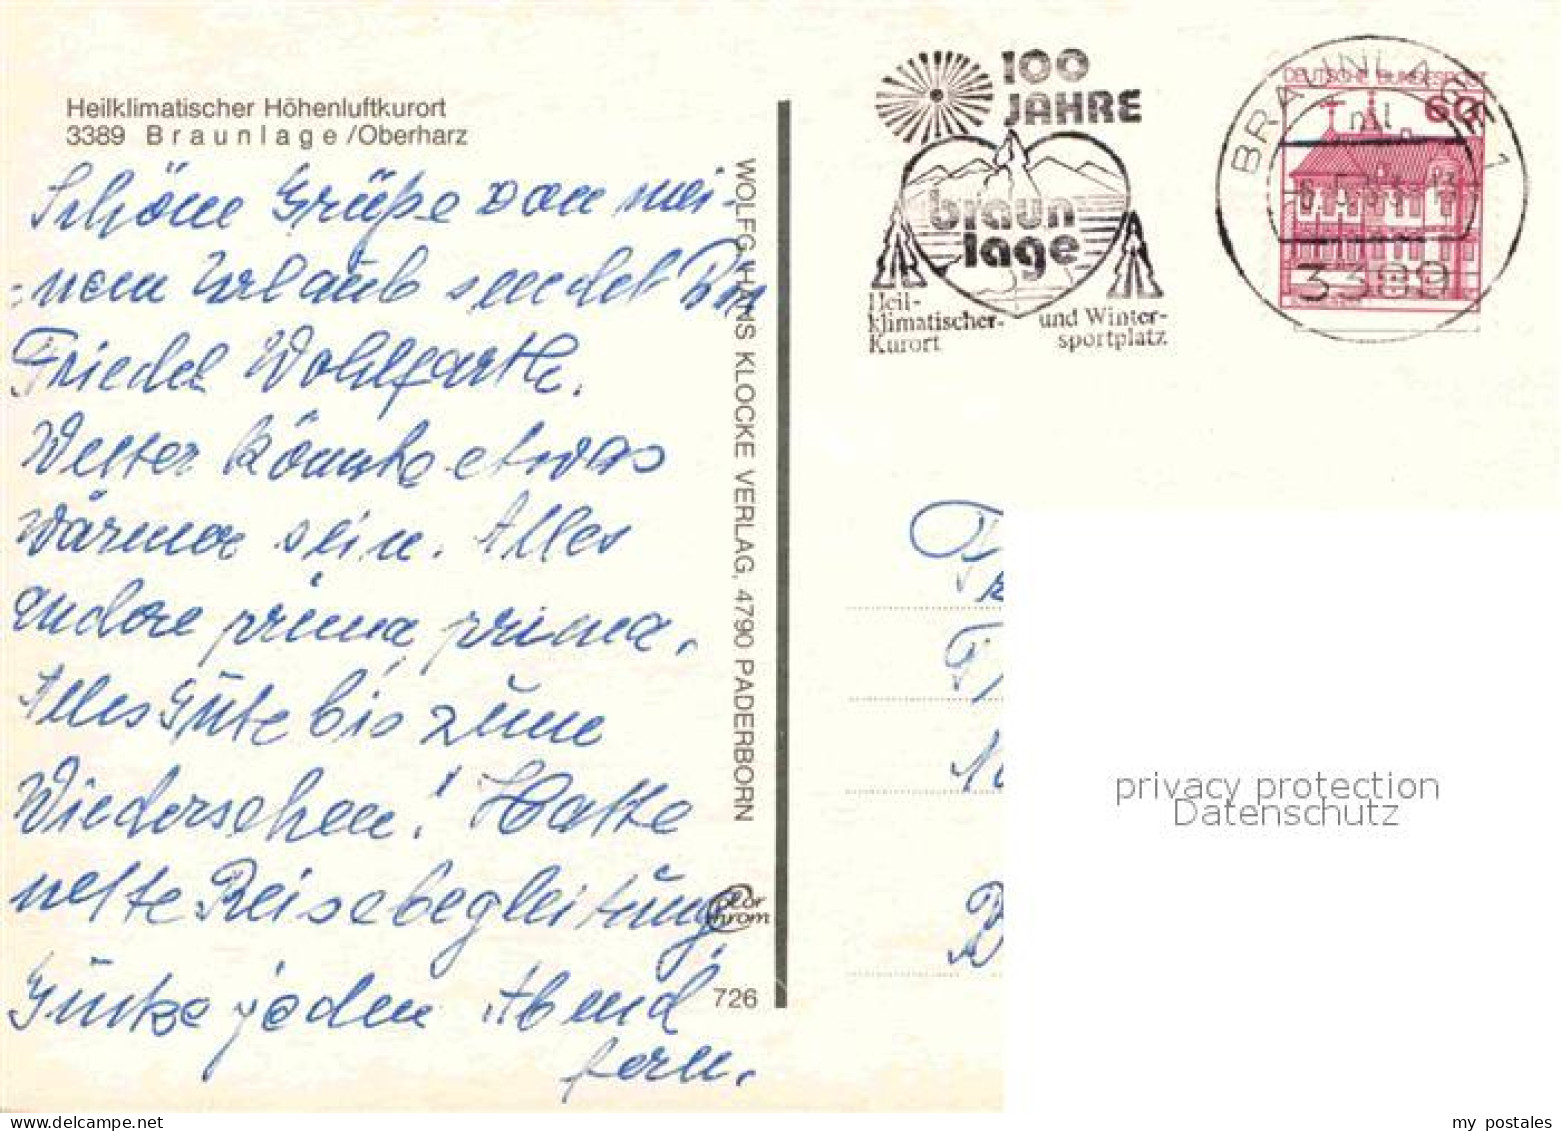 Heilklimatischer Höhenluftkurort
3389 Braunlage/Oberharz
Schöne Grüße von mei-
nem Urlaub sendet Dir
Friedel Wohlfarth.
Wetter könnte etwas
wärmer sein. Alles
andere prima prima.
Alles Gute bis zum
Wiedersehen! Hatte
nette Reisebegleitung
jeden Abend
fern.
WOLFG. HANS KLOCKE VERLAG, 4790 PADERBORN
color
chrom
726
100
JAHRE
braun
lage
Heil-
klimatischer-
Kurort
und Winter-
sportplatz
DEUTSCHE BUNDESPOST
60
BRAUNLAGE 1
3389
privacy protection
Datenschutz
my postales